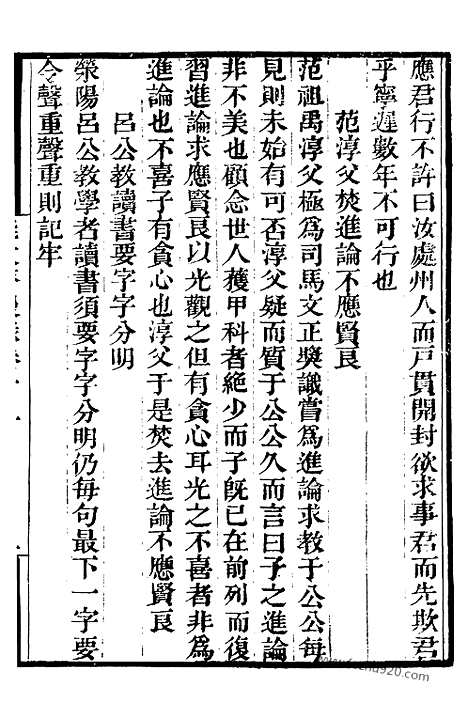 應君行不許曰汝處州人而戸貫開封欲求事君而先欺君
乎寧遲數年不可行也
范淳父焚進論不應賢良
范祖禹淳父極為司馬文正奬識嘗為進論求教于公公每
見則未始有可否淳父疑而質于公公久而言曰子之進論
非不美也顧念世人獲甲科者絶少而子旣已在前列而復
習進論求應賢良以光觀之但有貪心耳光之不喜者非為
進論也不喜子有貪心也淳父于是焚去進論不應賢良
呂公教讀書要字字分明
滎陽呂公教學者讀書須要字字分明仍每句最下一字要
令聲重聲重則記牢